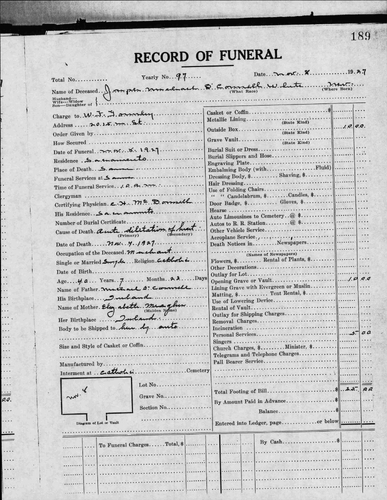 189
RECORD OF FUNERAL
Total No. Yearly No. 97 Date Nov. 8 1927
Name of Deceased Joseph Michael O'Connell White
(What Race) (Where Born)
Husband—
Wife—Widow
Son—Daughter of
Charge to W. F. Gormley
Address 2015 M. St.
Order Given by
How Secured
Date of Funeral Nov. 8, 1927
Residence Sacramento
Place of Death Same
Funeral Services at Same
Time of Funeral Service 10 A.M.
Clergyman
Certifying Physician
His Residence Sacramento
Number of Burial Certificate
Cause of Death Acute Dilitation of heart
(Primary) (Secondary)
Date of Death Nov. 4, 1927
Occupation of the Deceased
Single or Married Single Religion Catholic
Date of Birth
Age 40 Years 7 Months 22 Days
Name of Father Michael O'Connell
His Birthplace Ireland
Name of Mother Elizabeth
(Maiden Name)
Her Birthplace Ireland
Body to be Shipped to here by auto
Size and Style of Casket or Coffin
Manufactured by
Interment at Catholic Cemetery
Lot No.
Grave No.
Section No.
Diagram of Lot or Vault
Casket or Coffin
Metallic Lining
(State Kind)
Outside Box 10 00
(State Kind)
Grave Vault
(State Kind)
Burial Suit or Dress
Burial Slippers and Hose
Engraving Plate
Embalming Body (with Fluid)
Dressing Body, $ Shaving, $
Hair Dressing
Use of Folding Chairs
" " Candelabrum, $ Candles, $
Door Badge, $ Gloves, $
Hearse
Auto Limousines to Cemetery @ $
Autos to R. R. Station @ $
Other Vehicle Service
Aeroplane Service
Death Notices in Newspapers
(Names of Newspapers)
Flowers, $ Rental of Plants, $
Other Decorations
Outlay for Lot
Opening Grave or Vault 10 00
Lining Grave with Evergreen or Muslin
Matting, $ Tent Rental, $
Use of Lowering Device
Rental of Vault
Outlay for Shipping Charges
Removal Charges
Incineration
Personal Services 5 00
Singers
Church Charges, $ Minister, $
Telegrams and Telephone Charges
Pall Bearer Service
Total Footing of Bill $ 25 00
By Amount Paid in Advance
Balance $
Entered into Ledger, page or below
To Funeral Charges Total, $ By Cash $